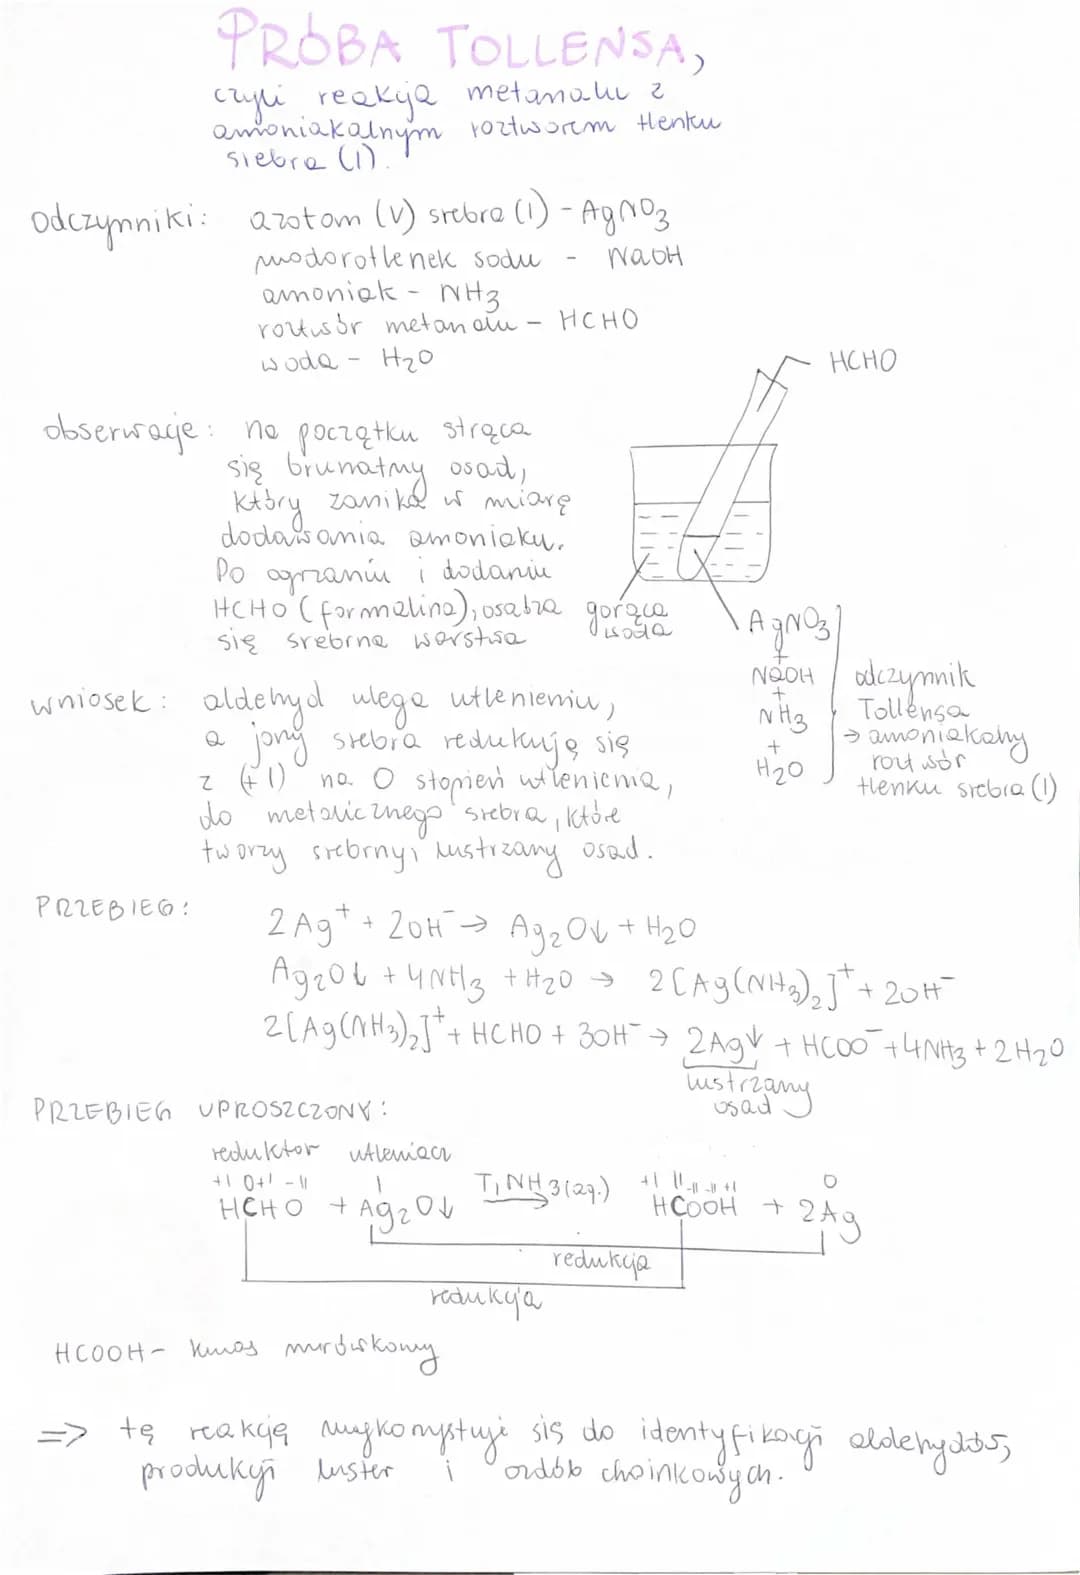 PRÓBA TOLLENSA,
czyli reakcja metanalu z
amoniakalnym roztworem tlenku
srebra (I).
odczynniki: azotam (V) srebra (I) - AgNO3
wodorotlenek sodu - NaOH
amoniak - NH3
roztwór metanalu - HCHO
woda - H2O
HCHO
obserwacje: na początku strąca
się brunatny osad,
który zanika w miarę
dodawania amoniaku.
Po ogrzaniu i dodaniu
HCHO (formalina), osadza
się srebrna warstwa
gorąca
woda
AgNO3
+
NaOH
+
NH3
+
H2O
odczynnik
Tollensa
→ amoniakalny
roztwór
tlenku srebra (I)
wniosek: aldehyd ulega utlenieniu,
a jony srebra redukują się
z (+1) na 0 stopień utlenienia,
do metalicznego srebra, które
tworzy srebrny, lustrzany osad.
PRZEBIEG:
2Ag⁺ + 2OH⁻ → Ag2O↓ + H2O
Ag2O↓ + 4NH3 + H2O → 2[Ag(NH3)2]⁺ + 2OH⁻
2[Ag(NH3)2]⁺ + HCHO + 3OH⁻ → 2Ag↓ + HCOO⁻ + 4NH3 + 2H2O
lustrzany
osad
PRZEBIEG UPROSZCZONY:
reduktor utleniacz
+I 0 +I -II I T, NH3(aq.) +I II -II -II +I 0
HCHO + Ag2O↓ → HCOOH + 2Ag
redukcja
redukcja
HCOOH - kwas mrówkowy
=> tę reakcję wykorzystuje się do identyfikacji aldehydów,
produkcji luster i ozdób choinkowych.